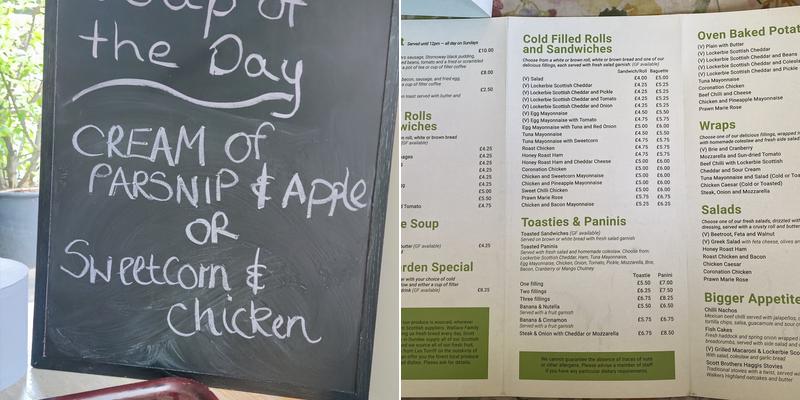 Soup of
the Day
CREAM of
PARSNIP & Apple
OR
Sweetcorn &
chicken
Served until 12pm – all day on Sundays
£10.00
£8.00
£2.50
Rolls
£4.25
£4.25
£4.25
£4.25
£4.25
£4.75
e Soup
£4.25
arden Special
£8.25
Cold Filled Rolls
and Sandwiches
Choose from a white or brown roll, white or brown bread and one of our
delicious fillings, each served with fresh salad garnish (GF available)
Sandwich/Roll Baguette
(V) Salad £4.00 £5.00
(V) Lockerbie Scottish Cheddar £4.25 £5.25
(V) Lockerbie Scottish Cheddar and Pickle £4.25 £5.25
(V) Lockerbie Scottish Cheddar and Tomato £4.25 £5.25
(V) Lockerbie Scottish Cheddar and Onion £4.25 £5.25
(V) Egg Mayonnaise £4.50 £5.50
(V) Egg Mayonnaise with Tomato £4.75 £5.75
Egg Mayonnaise with Tuna and Red Onion £5.00 £6.00
Tuna Mayonnaise £4.50 £5.50
Tuna Mayonnaise with Sweetcorn £4.75 £5.75
Roast Chicken £4.75 £5.75
Honey Roast Ham £4.75 £5.75
Honey Roast Ham and Cheddar Cheese £5.00 £6.00
Coronation Chicken £5.00 £6.00
Chicken and Sweetcorn Mayonnaise £5.00 £6.00
Chicken and Pineapple Mayonnaise £5.00 £6.00
Sweet Chilli Chicken £5.00 £6.00
Prawn Marie Rose £5.75 £6.75
Chicken and Bacon Mayonnaise £5.25 £6.25
Toasties & Paninis
Toasted Sandwiches (GF available)
Served on brown or white bread with fresh salad garnish
Toasted Paninis
Served with fresh salad and homemade coleslaw. Choose from:
Lockerbie Scottish Cheddar, Ham, Tuna Mayonnaise,
Egg Mayonnaise, Chicken, Onion, Tomato, Pickle, Mozzarella, Brie,
Bacon, Cranberry or Mango Chutney
Toastie Panini
One filling £5.50 £7.00
Two fillings £6.25 £7.50
Three fillings £6.75 £8.25
Banana & Nutella £5.50 £6.50
Served with a fruit garnish
Banana & Cinnamon £5.75 £6.75
Served with a fruit garnish
Steak & Onion with Cheddar or Mozzarella £6.75 £8.50
We cannot guarantee the absence of traces of nuts
or other allergens. Please advise a member of staff
if you have any particular dietary requirements.
Oven Baked Potat
(V) Plain with Butter
(V) Lockerbie Scottish Cheddar
(V) Lockerbie Scottish Cheddar and Beans
(V) Lockerbie Scottish Cheddar and Pickle
Tuna Mayonnaise
Coronation Chicken
Beef Chilli and Cheese
Chicken and Pineapple Mayonnaise
Prawn Marie Rose
Wraps
Choose one of our delicious fillings, wrapped
with homemade coleslaw and fresh side salad
(V) Brie and Cranberry
Mozzarella and Sun-dried Tomato
Beef Chilli with Lockerbie Scottish
Cheddar and Sour Cream
Tuna Mayonnaise and Salad (Cold or Toa
Chicken Caesar (Cold or Toasted)
Steak, Onion and Mozzarella
Salads
Choose one of our fresh salads, drizzled with
dressing, served with a crusty roll and butter
(V) Beetroot, Feta and Walnut
(V) Greek Salad with feta cheese, olives
Honey Roast Ham
Roast Chicken and Bacon
Chicken Caesar
Coronation Chicken
Prawn Marie Rose
Bigger Appetite
Chilli Nachos
Mexican beef chilli served with jalapeños,
tortilla chips, salsa, guacamole and sour
Fish Cakes
Fresh haddock and spring onion wrapped
breadcrumbs, served with side salad and
(V) Grilled Macaroni & Lockerbie Sco
With salad, coleslaw and garlic bread
Scott Brothers Haggis Stovies
Traditional stovies with a twist, served
Walkers Highland oatcakes and butter